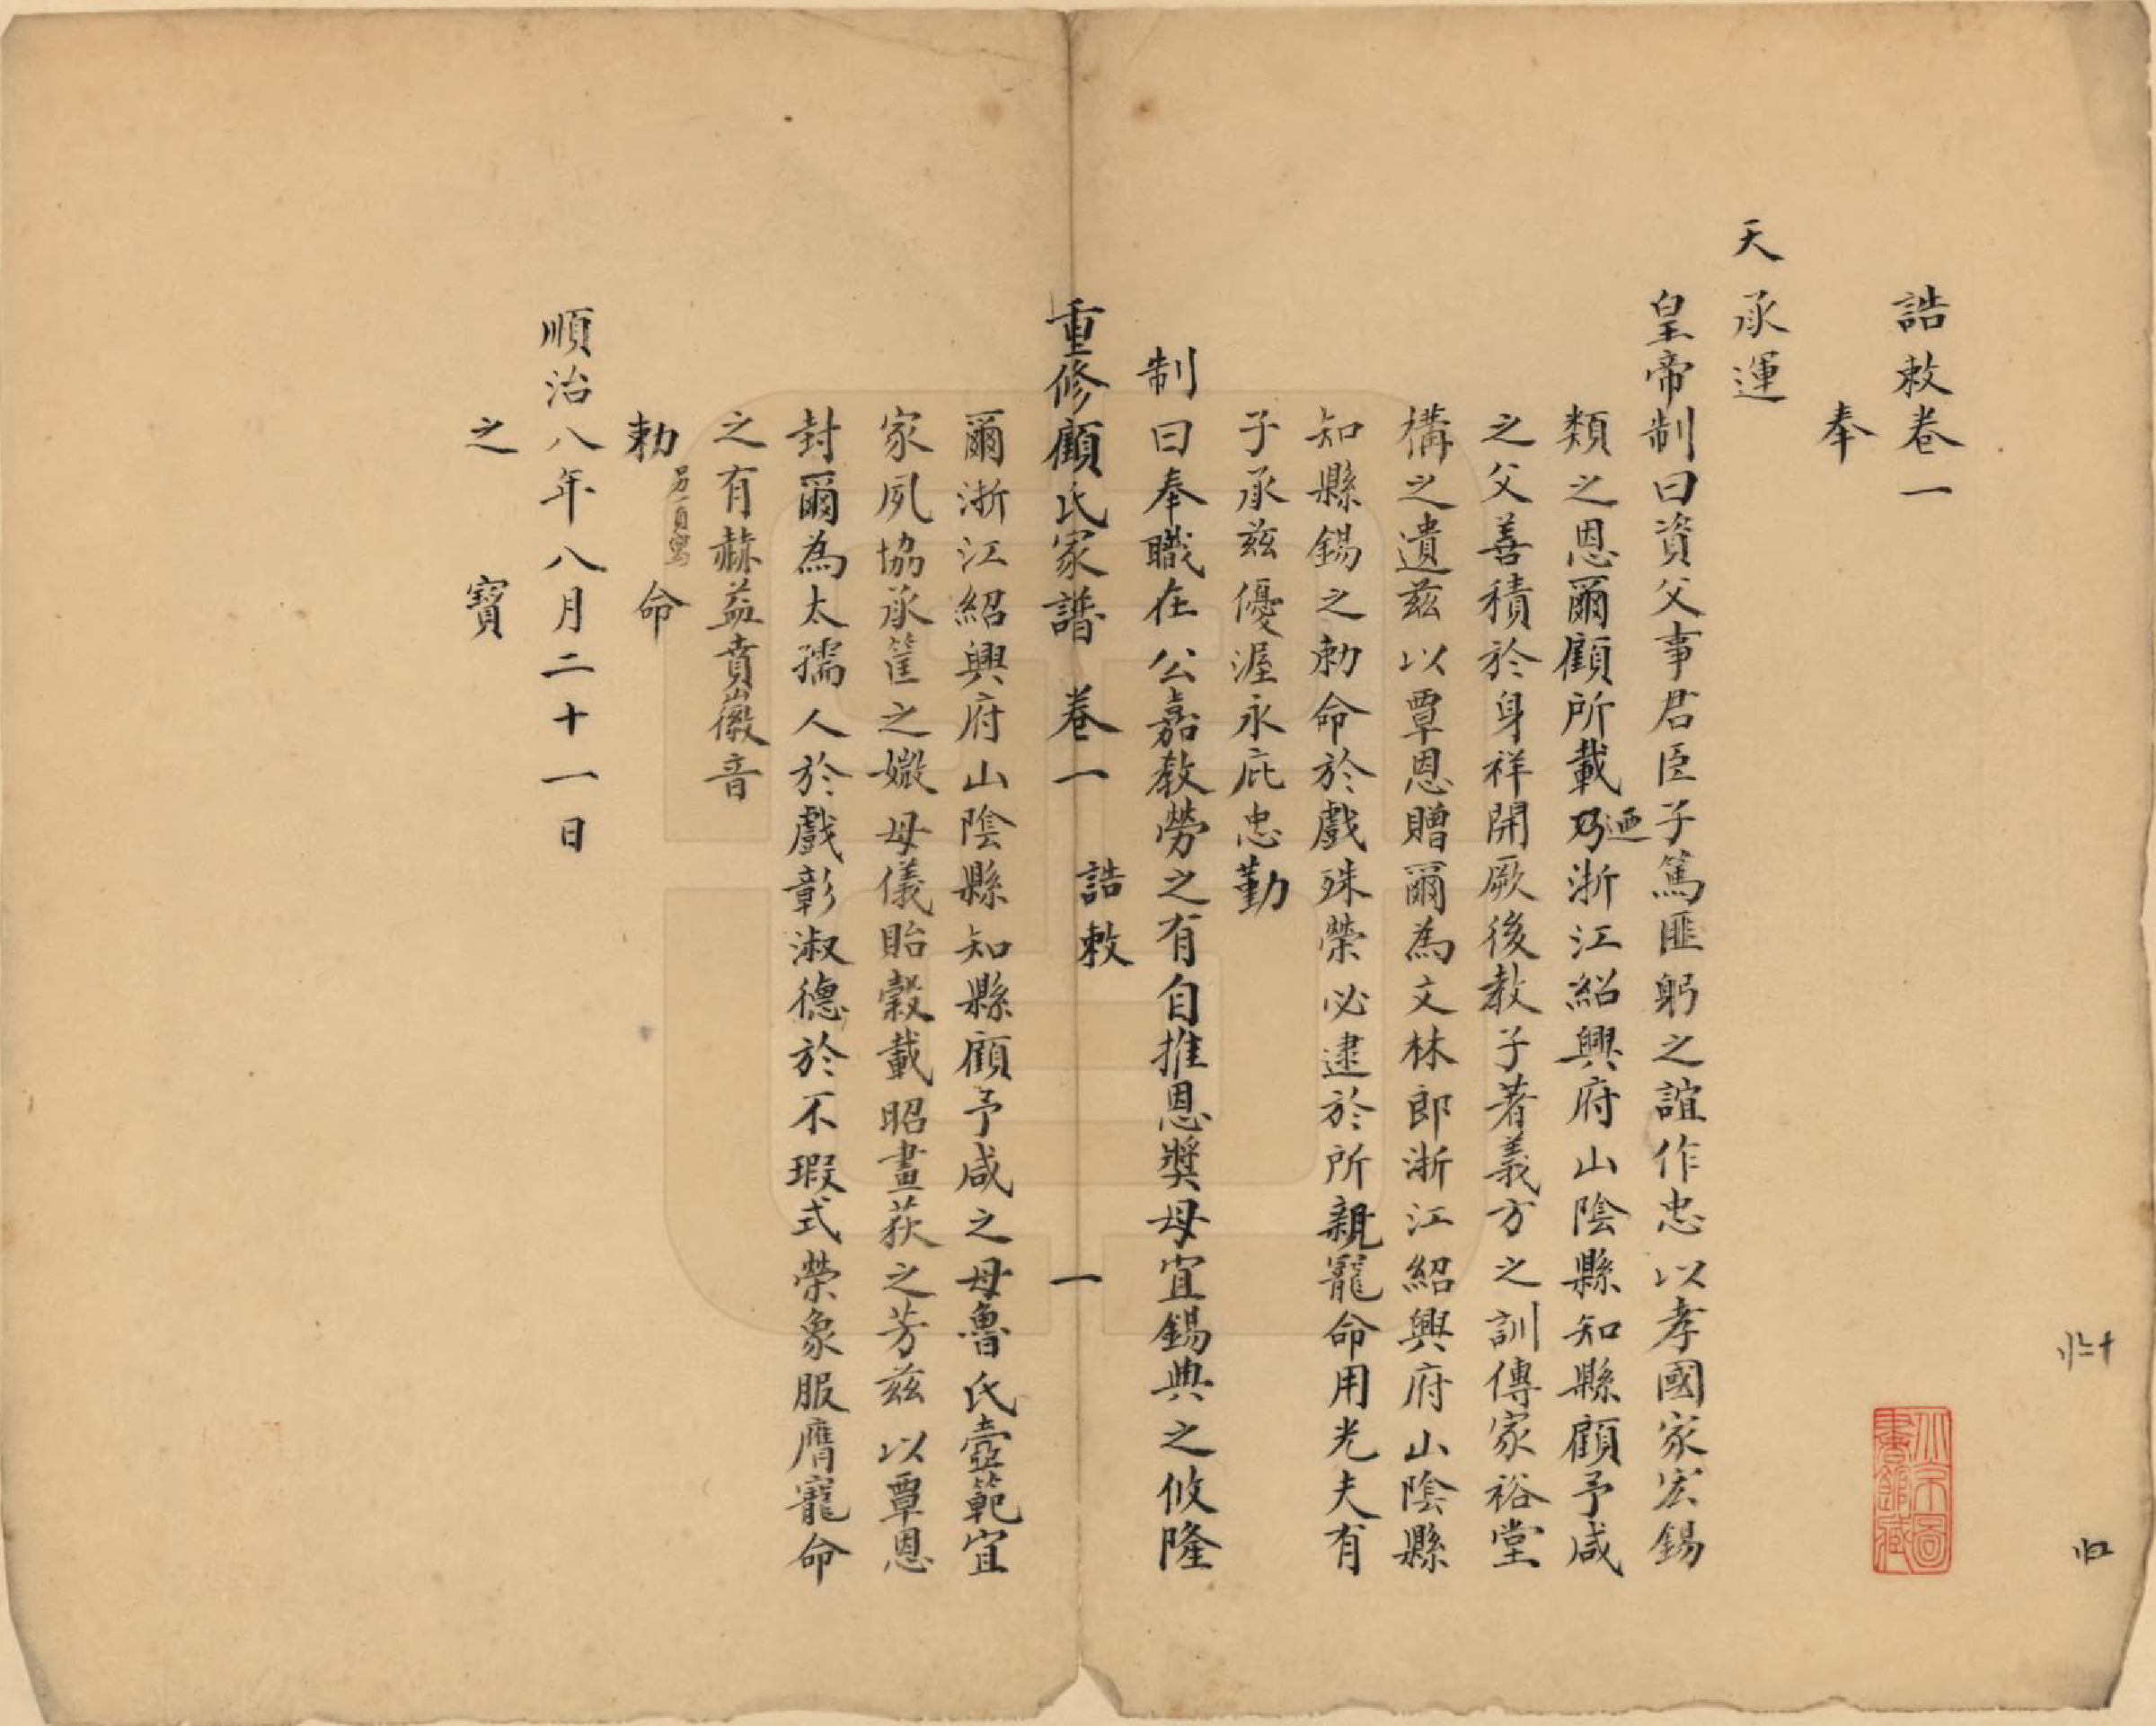 誥敕卷一
奉
天承運
皇帝制曰資父事君臣子篤匪躬之誼作忠以孝國家宏錫
類之恩爾顧所載乃浙江紹興府山陰縣知縣顧予咸
迺
之父善積於身祥開厥後教子著義方之訓傳家裕堂
構之遺茲以覃恩贈爾為文林郎浙江紹興府山陰縣
知縣錫之勅命於戲殊榮必逮於所親寵命用光夫有
子承茲優渥永庇忠勤
制曰奉職在公嘉教勞之有自推恩奬母宜錫典之攸隆
重修顧氏家譜 卷一 誥敕 一
爾浙江紹興府山陰縣知縣顧予咸之母魯氏壼範宜
家夙協承筐之媺母儀貽穀載昭畫荻之芳茲以覃恩
封爾為太孺人於戲彰淑德於不瑕式榮象服膺寵命
之有赫益賁徽音
另頁寫
勅命
順治八年八月二十一日
之寶
北京圖書館藏